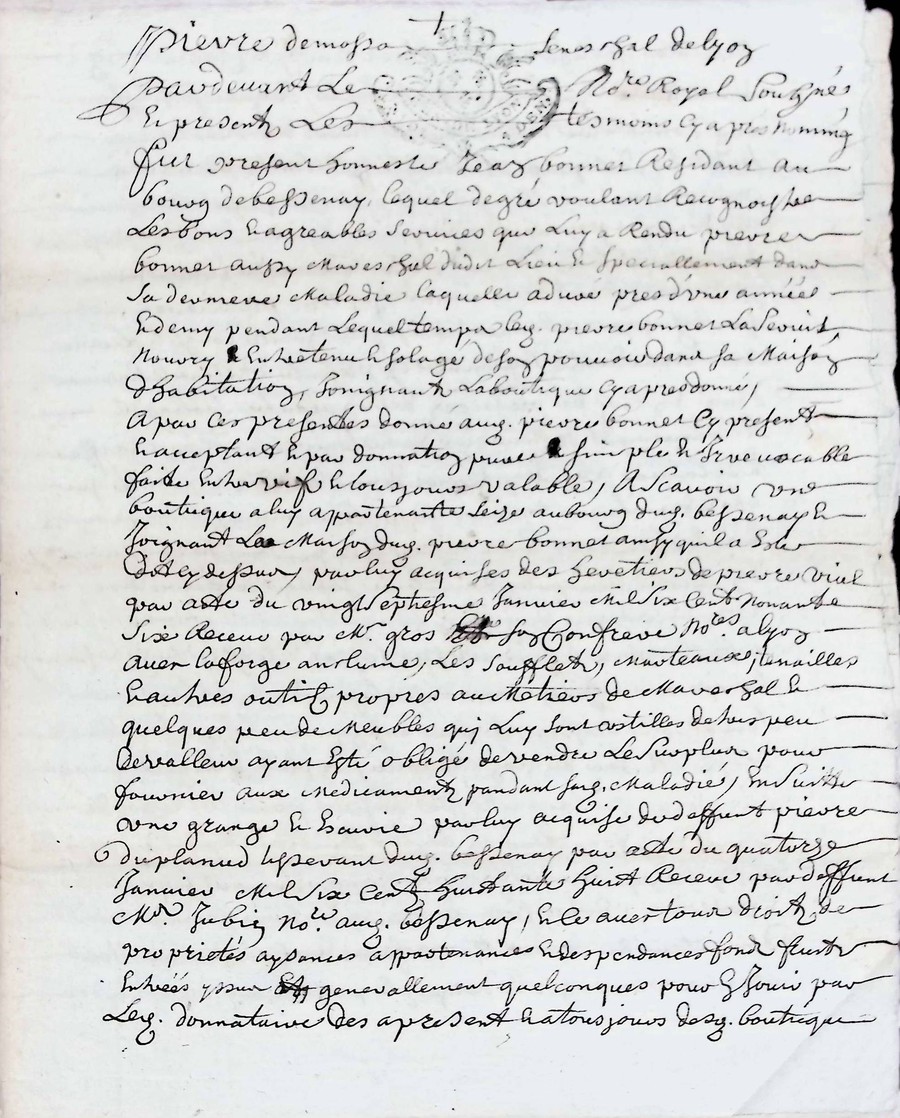 Pierre demossa seneschal de lyon
Pardevant Le No.re Royal Soubzné
Et present Les tesmoins Cy apres nommé
fut present honneste Jean bonnet Residant au
bourg de bessenay, lequel de gré voulant Recognoistre
Les bons et agreables services que Luy a Rendu pierre
bonnet aussy Mareschal dudit Lieu et speciallement dans
sa derniere Maladie laquelle a duré pres d'une année
Et demy pendant Lequel temps led. pierre bonnet La servit
nourry & Entretenu et solagé de son pouvoir dans sa Maison
d'habitation, Joinignant La boutique Cy apres donné,
a par ces presentes donné aud. pierre bonnet Cy present
et acceptant et par donnation pure & simple et Irreuocable
faite Entre vifs et tousjours valable, A Scavoir une
boutique a luy appartenante seize au bourg dud. bessenay et
Joignant La Maison dud. pierre bonnet ainsy quil a Esté
dit cy dessus, par luy acquises des heretiers de pierre vial
par acte du vingt septiesme Janvier Mil Six Cent nonante
Six Receu par M.r gros son Confrere No.res a lyon
avec la forge anclume, Les Soufflets, Marteaux, tenailles
et autres outils propres au Metiers de Mareschal et
quelques peu de Meubles quj Luy sont de tres peu
de valleur ayant Esté obligé de vendre Le Surplus pour
fournier aux Medicaments pandant sad. Maladié, Ensuitte
une grange et Escurie par luy acquise du deffunt pierre
duplanil dud. bessenay par acte du quatorze
Janvier Mil Six Cents huittante huit Receu par deffunt
M.re Jubin No.re aud. bessenay, et ce avec tous droits de
proprietés aysances appartenances et despendances fond fruits
Entrées yssus generallement quelconques pour En Jouir par
Led. donnataire des a present et a tousjours desd. boutique